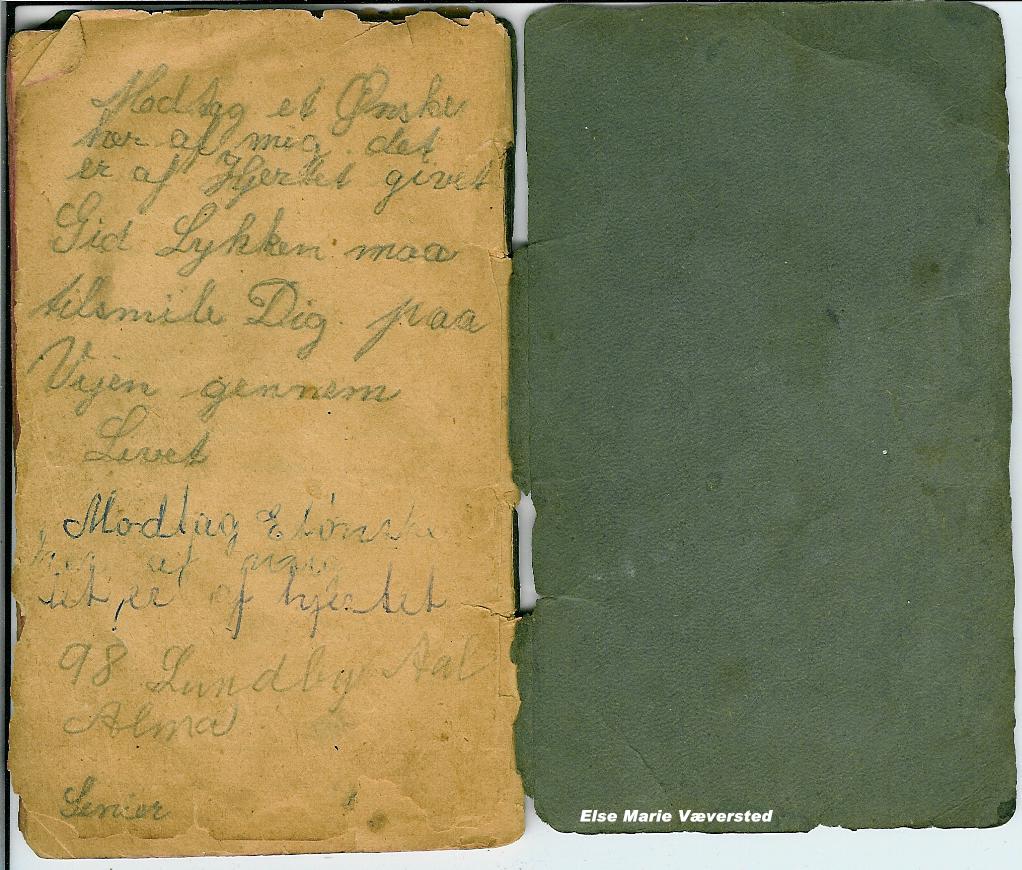 Modtag et Ønske
her af mig det
er af Hjertet givet
Gid Lykken maa
tilsmile Dig paa
Vejen gennem
Livet
Modtag Etønske
her af mig
det er af hjertet
98 Lundby Aal
Alma
Else Marie Væversted